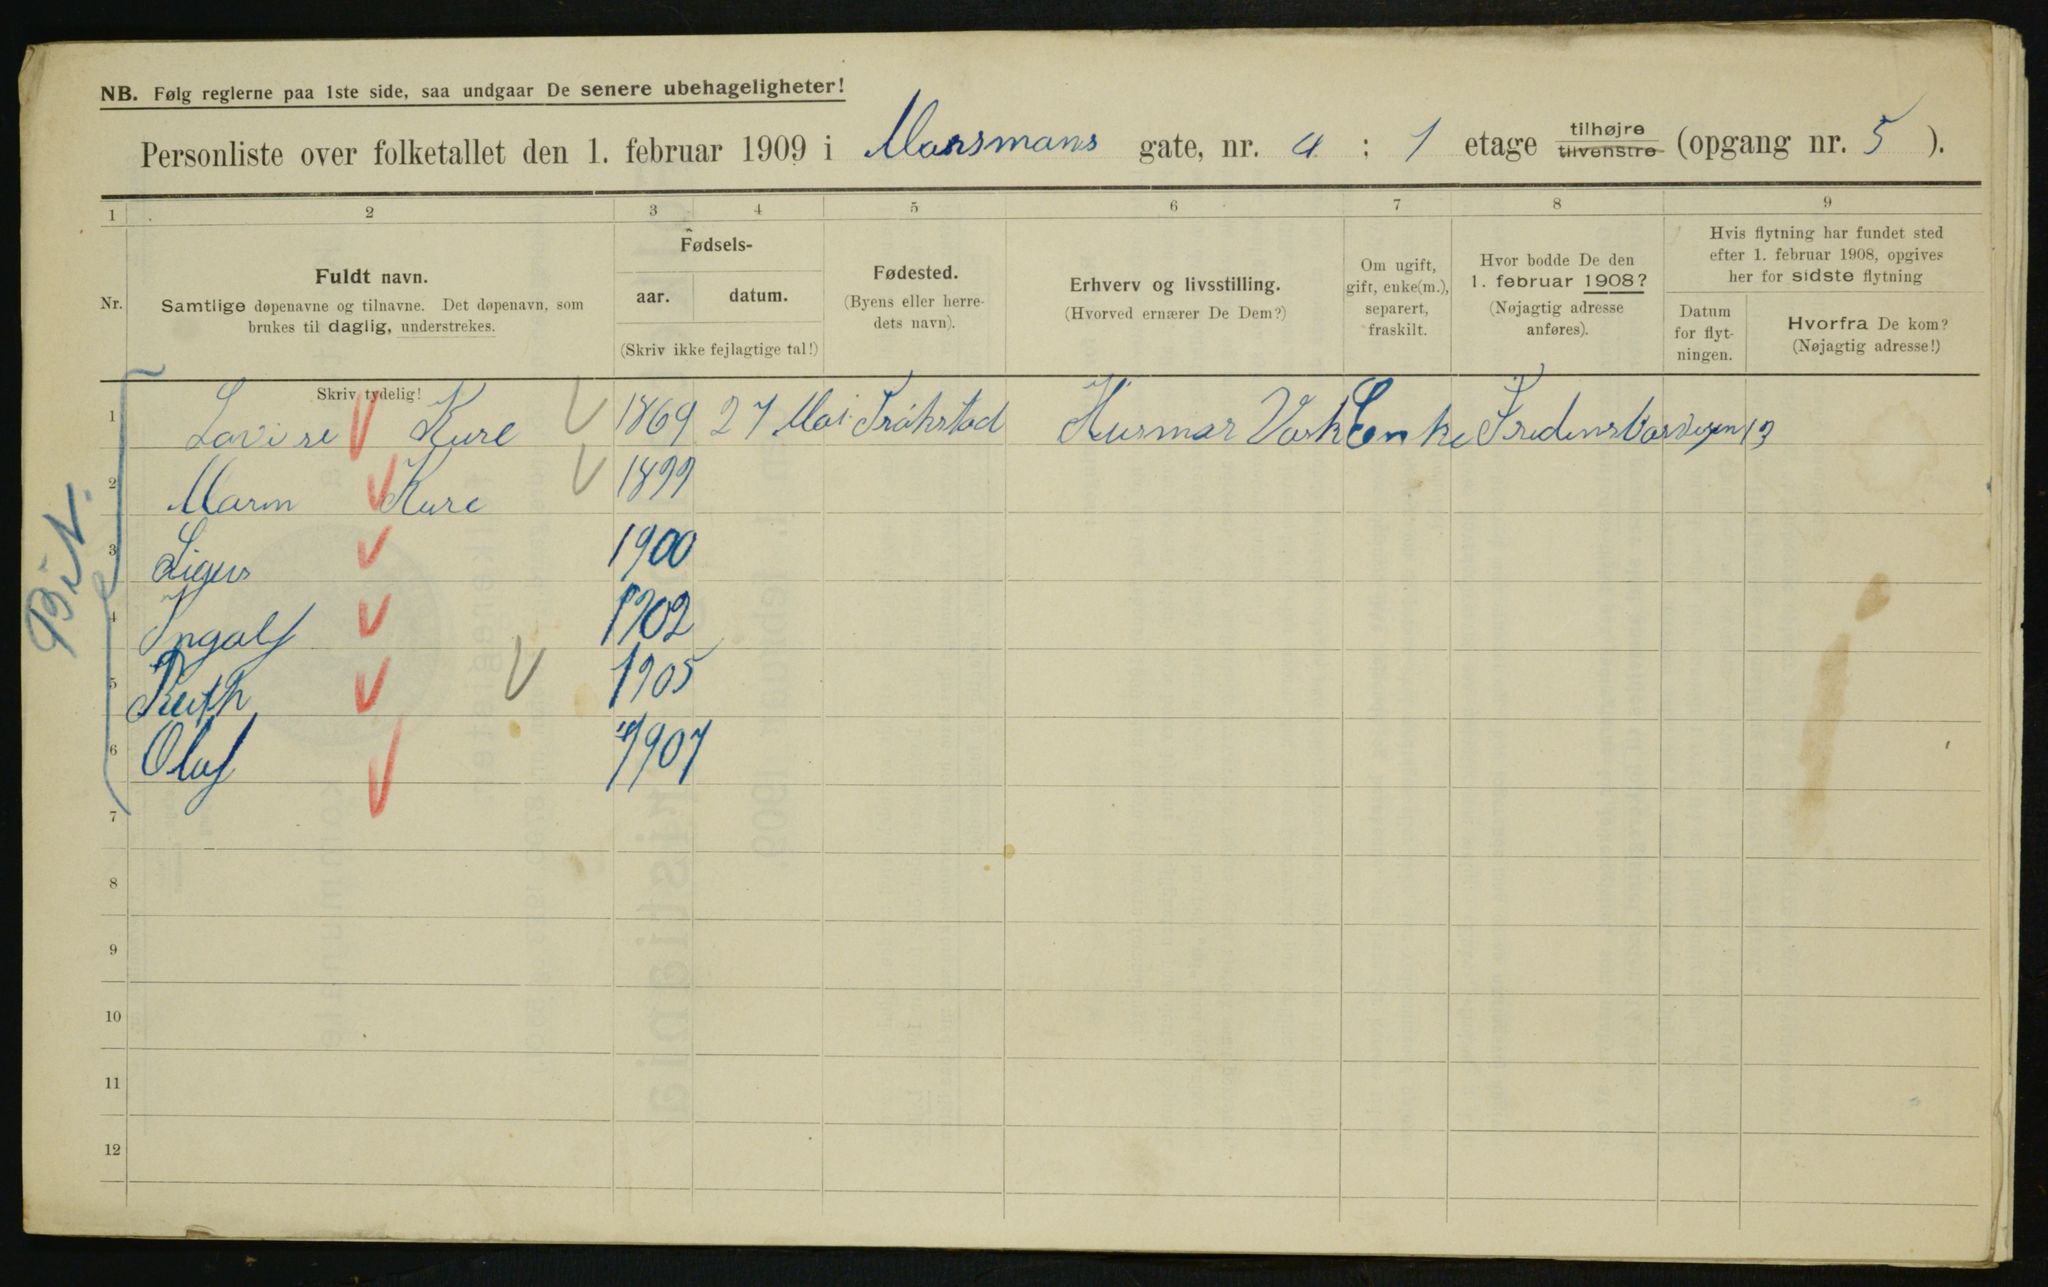 NB. Følg reglerne paa 1ste side, saa undgaar De senere ubehageligheter!
Personliste over folketallet den 1. februar 1909 i Marsmans gate, nr. a : 1 etage tilhøjre tilvenstre (opgang nr. 5 ).
1 2 3 4 5 6 7 8 9
Nr.
Fuldt navn.
Samtlige døpenavne og tilnavne. Det døpenavn, som
brukes til daglig, understrekes.
Fødsels-
aar. datum.
(Skriv ikke fejlagtige tal!)
Fødested.
(Byens eller herre-
dets navn).
Erhverv og livsstilling.
(Hvorved ernærer De Dem?)
Om ugift,
gift, enke(m.),
separert,
fraskilt.
Hvor bodde De den
1. februar 1908?
(Nøjagtig adresse
anføres).
Hvis flytning har fundet sted
efter 1. februar 1908, opgives
her for sidste flytning
Datum
for flyt-
ningen.
Hvorfra De kom?
(Nøjagtig adresse!)
Skriv tydelig!
1 Lovise Kure 1869 27 Mai Trøhstad Husmor Vask Enke Fredensborveien 13
2 Marın Kure 1899
3 1900
4 Ingolf 1902
5 Ruth 1905
6 Olaf 1907
7
8
9
10
11
12